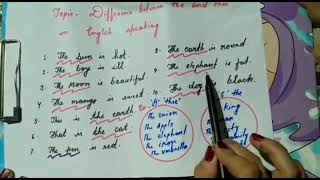 Topic- Difference between the and thee
in English speaking
1. The sun is hot.
2. The boy is ill.
3. The moon is beautiful.
4. The mango is sweet.
5. This is the earth.
6. That is the cat.
7. The pen is red.
8. The earth is round
9. The elephant is fat.
10. The dog is black.
'A' thee
The union
The Apple
The elephant
The umbrella
'S' the
king